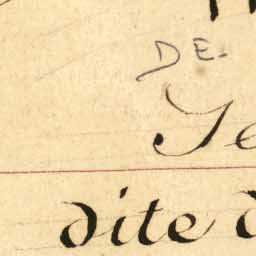 DE.
Je
dite d